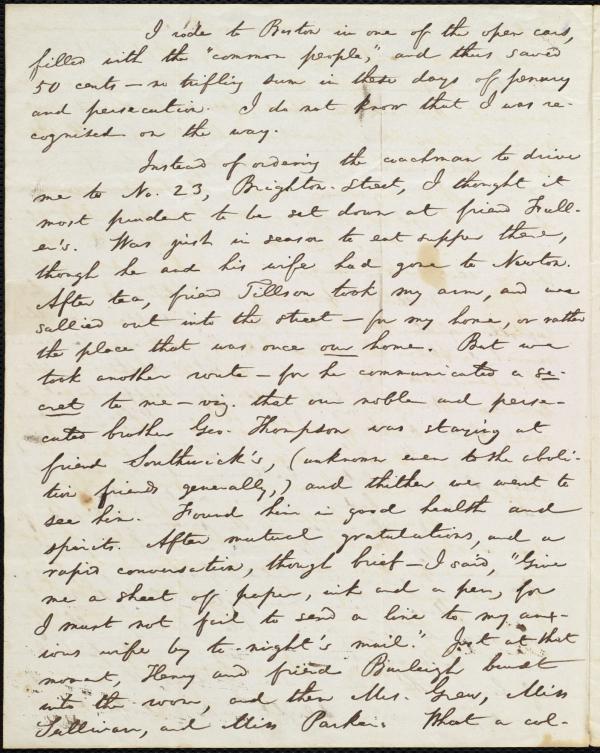 I rode to Boston in one of the open cars,
filled with the "common people," and thus saved
50 cents — no trifling sum in these days of penury
and persecution. I do not know that I was re-
cognised on the way.
Instead of ordering the coachman to drive
me to No. 23, Brighton-street, I thought it
most prudent to be set down at friend Full-
er's. Was just in season to eat supper there,
though he and his wife had gone to Newton.
After tea, friend Tillson took my arm, and we
sallied out into the street — for my home, or rather
the place that was once our home. But we
took another route — for he communicated a se-
cret to me — viz. that our noble and perse-
cuted brother Geo. Thompson was staying at
friend Southwick's, (unknown even to the aboli-
tion friends generally,) and thither we went to
see him. Found him in good health and
spirits. After mutual gratulations, and a
rapid conversation, though brief — I said, "Give
me a sheet of paper, ink and a pen, for
I must not fail to send a line to my anx-
ious wife by to-night's mail." Just at that
moment, Henry and friend Burleigh burst
into the room, and then Mrs. Grew, Miss
Sullivan, and Miss Parker. What a col-